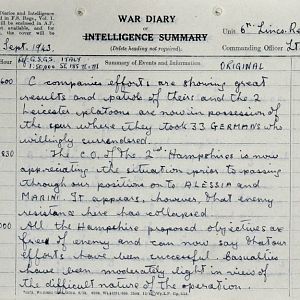 Diaries and Intelligence
in F.S. Regs., Vol. I.
WAR DIARY
OR
INTELLIGENCE SUMMARY
(Delete heading not required).
Unit 6th Lincs. Re
Commanding Officer Lt
Sept. 1943.
Ref G.S.G.S. ITALY
1:50,000
Summary of Events and Information
ORIGINAL
600 C company's efforts are showing great
results and patrols of theirs and the 2
Leicester platoons are now in possession
of the spur where they took 33 GERMANS who
willingly surrendered.
830 The C.O. of the 2nd Hampshires is now
appreciating the situation prior to passing
through our position on to ALESSIA and
MARINI. It appears, however, that enemy
resistance here has collapsed.
000 All the Hampshire proposed objectives are
free of enemy and can now say that our
efforts have been successful. Casualties
have been moderately light in view of
the difficult nature of the operation.